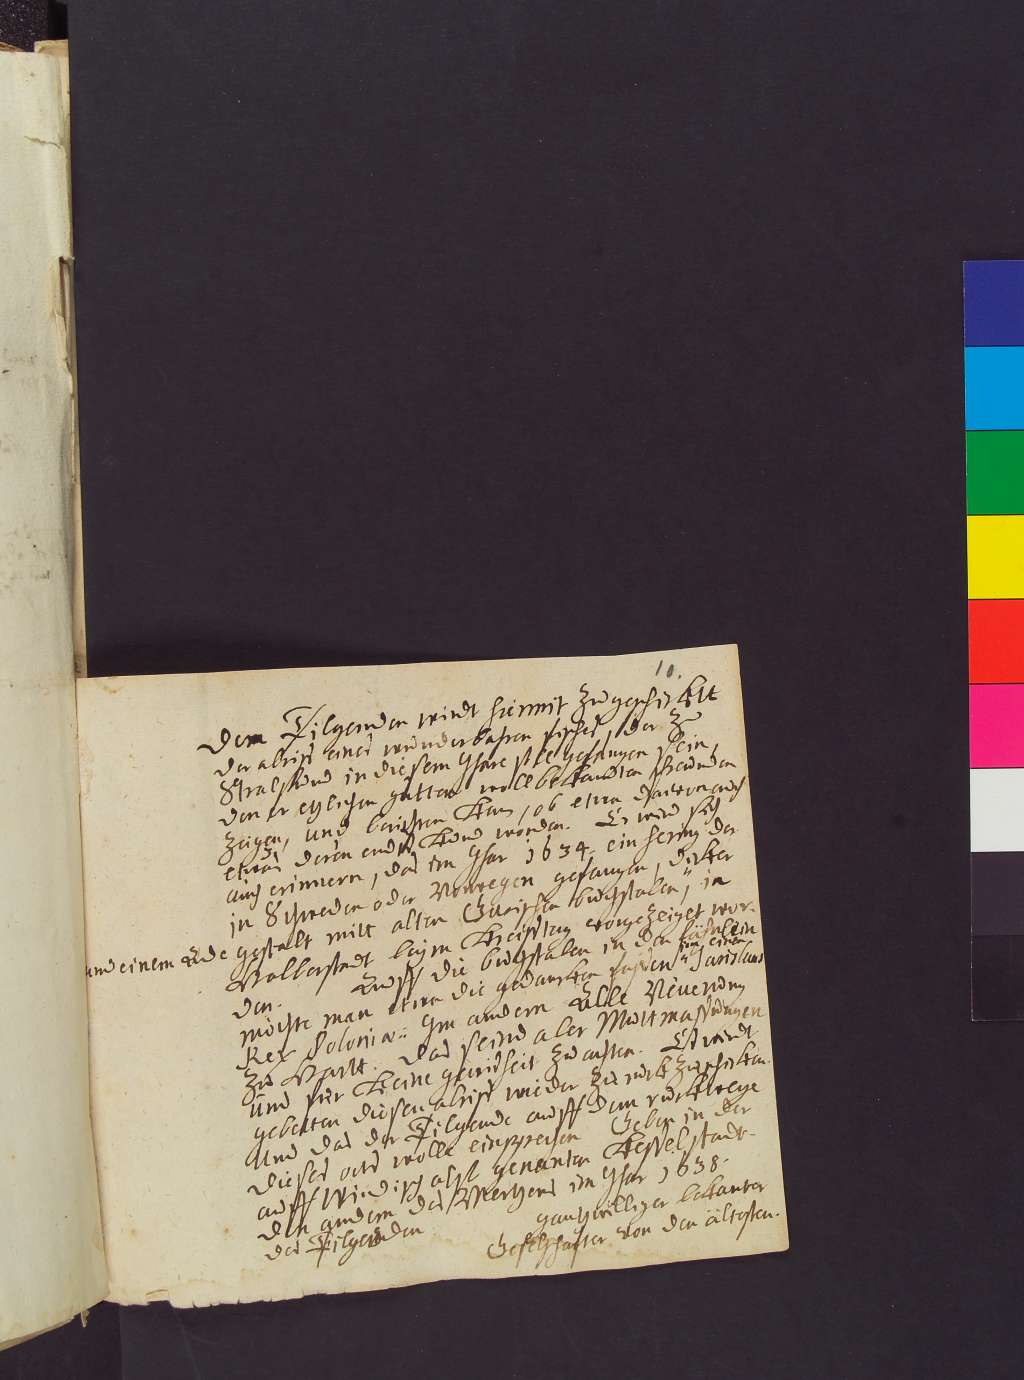 10.
Dem Pilgenden wirdt hiermit zugeschickt
der abris eines wunderbahren fisches, der zu
Stralsund in diesem Jhare ist gefangen
den er etzlichen gutten wollbekandten freunden
zeigen, und berichten kan, ob etwa davon auch
etwas deren endts kund worden. Er wird sich
auch erinnern, das im Jhar 1634. ein hering der
in Schweden oder Norwegen gefangen,
und einem Ende gestalt mitt alten buchstaben, in
Halberstadt beym Kreistag vorgezeiget wor-
den. Auff die buchstaben in den
möchte man etwa die gedancken fassen
Rex Poloniæ: Im andern Alle Neuerung
zu Das seind aber Muttmassungen
und hier keine gewisheit zu achten. Es wirdt
gebetten diesen abris wieder zu rück zuschicken.
Und das der Pilgende auff dem rückwege
dieses orts wolle einsprechen Geben in der
auff Windisch also genanten Kesselstadt.
den andern des Mertzens im Jhar 1638.
des Pilgenden gantzwilliger bekanter
Geselschafter von den ältesten.